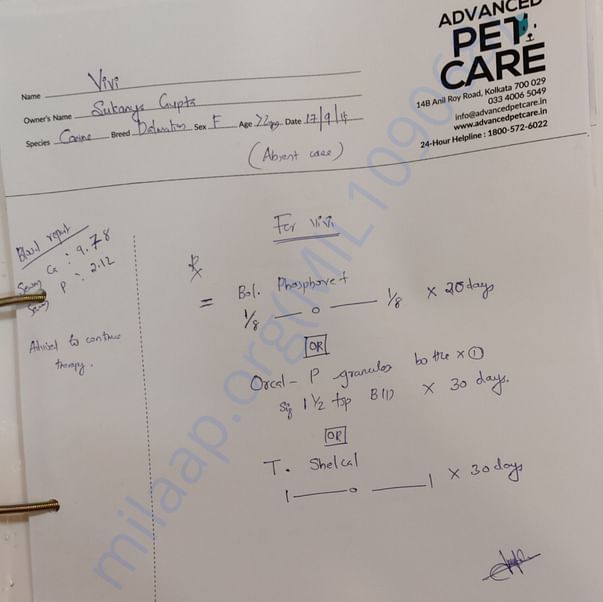 ADVANCED
PET
CARE
14B Anil Roy Road, Kolkata 700 029
033 4006 5049
info@advancedpetcare.in
www.advancedpetcare.in
24-Hour Helpline : 1800-572-6022
Name Vivi
Owner's Name Sukanya Gupta
Species Canine Breed Dalmatian Sex F Age Date 17/9/
(Absent case)
Blood report
Serum Ca : 9.78
Serum P : 2.12
Advised to continue
therapy.
For Vivi
Rx
= Bol. Phosphovet
1/8 — o — 1/8 X 20 days
OR
Orcal-P granules bottle x 1
Sig 1 1/2 tsp BID X 30 days.
OR
T. Shelcal
1 — o — 1 X 30 days
milaap.org(MIL10906